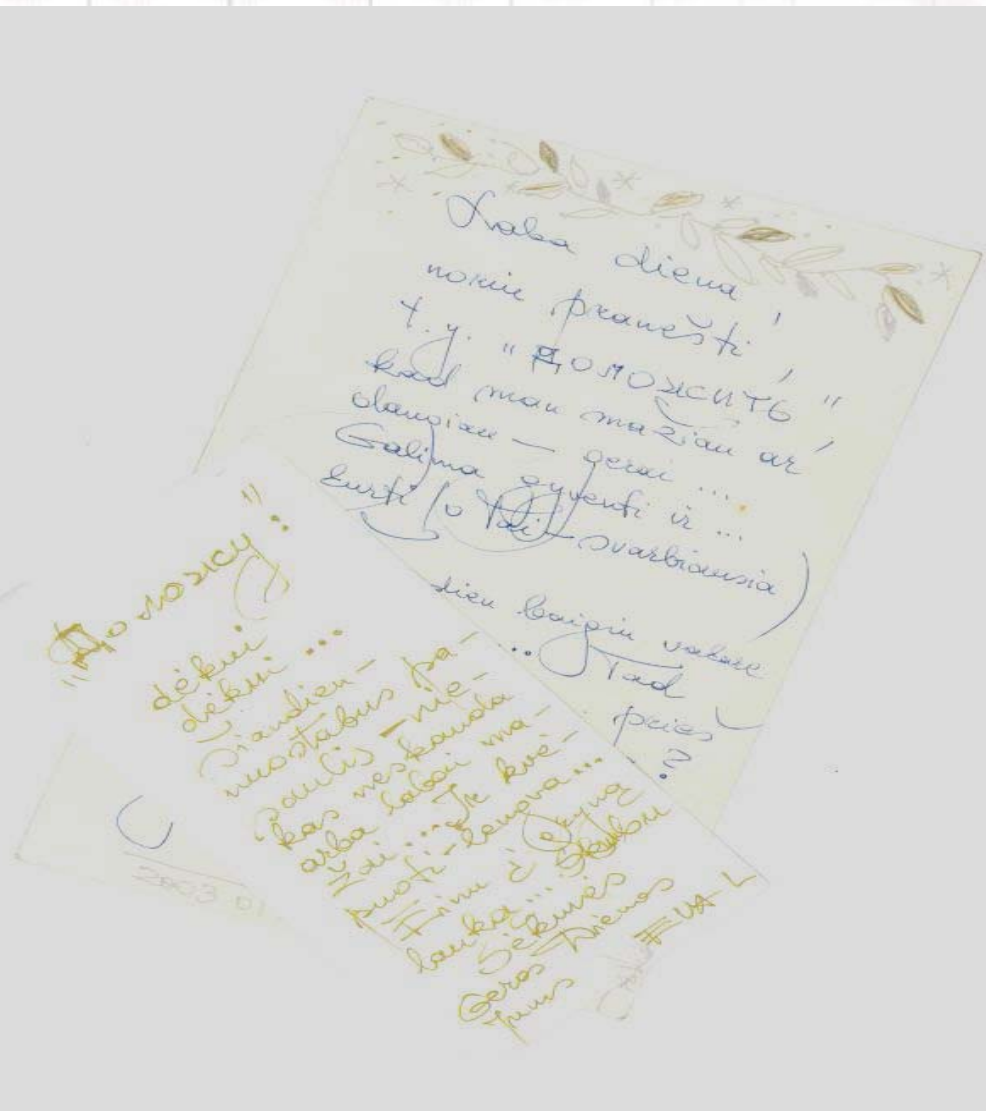 Laba diena!
noriu pranešti,
t.y. "ДОЛОЖИТЬ",
kad man mažiau ar
daugiau – gerai ...
Galima gyventi ir ...
kurti (o tai – svarbiausia)
dieną baigiu vakare
... Tad
prieš
?
"Доложу":
dėkui
dėkui ...
Šiandien –
nuostabus pa-
saulis – nie-
kas neskauda
arba labai ma-
žai ... Ir kvė-
puoti – lengva ...
Einu į gryną
lauką ...
Sėkmės
Geros Dienos
Jums
2003 01